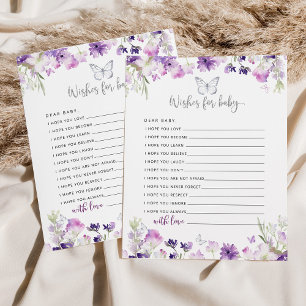 Wishes for baby
DEAR BABY
I HOPE YOU LOVE
I HOPE YOU BECOME
I HOPE YOU LEARN
I HOPE YOU BELIEVE
I HOPE YOU LAUGH
I HOPE YOU DON'T
I HOPE YOU ARE NOT AFRAID
I HOPE YOU NEVER FORGET
I HOPE YOU RESPECT
I HOPE YOU FORGIVE
I HOPE YOU ALWAYS
with love
Wishes for baby
DEAR BABY
I HOPE YOU LOVE
I HOPE YOU BECOME
I HOPE YOU LEARN
I HOPE YOU BELIEVE
I HOPE YOU LAUGH
I HOPE YOU DON'T
I HOPE YOU ARE NOT AFRAID
I HOPE YOU NEVER FORGET
I HOPE YOU RESPECT
I HOPE YOU IGNORE
I HOPE YOU ALWAYS
with love